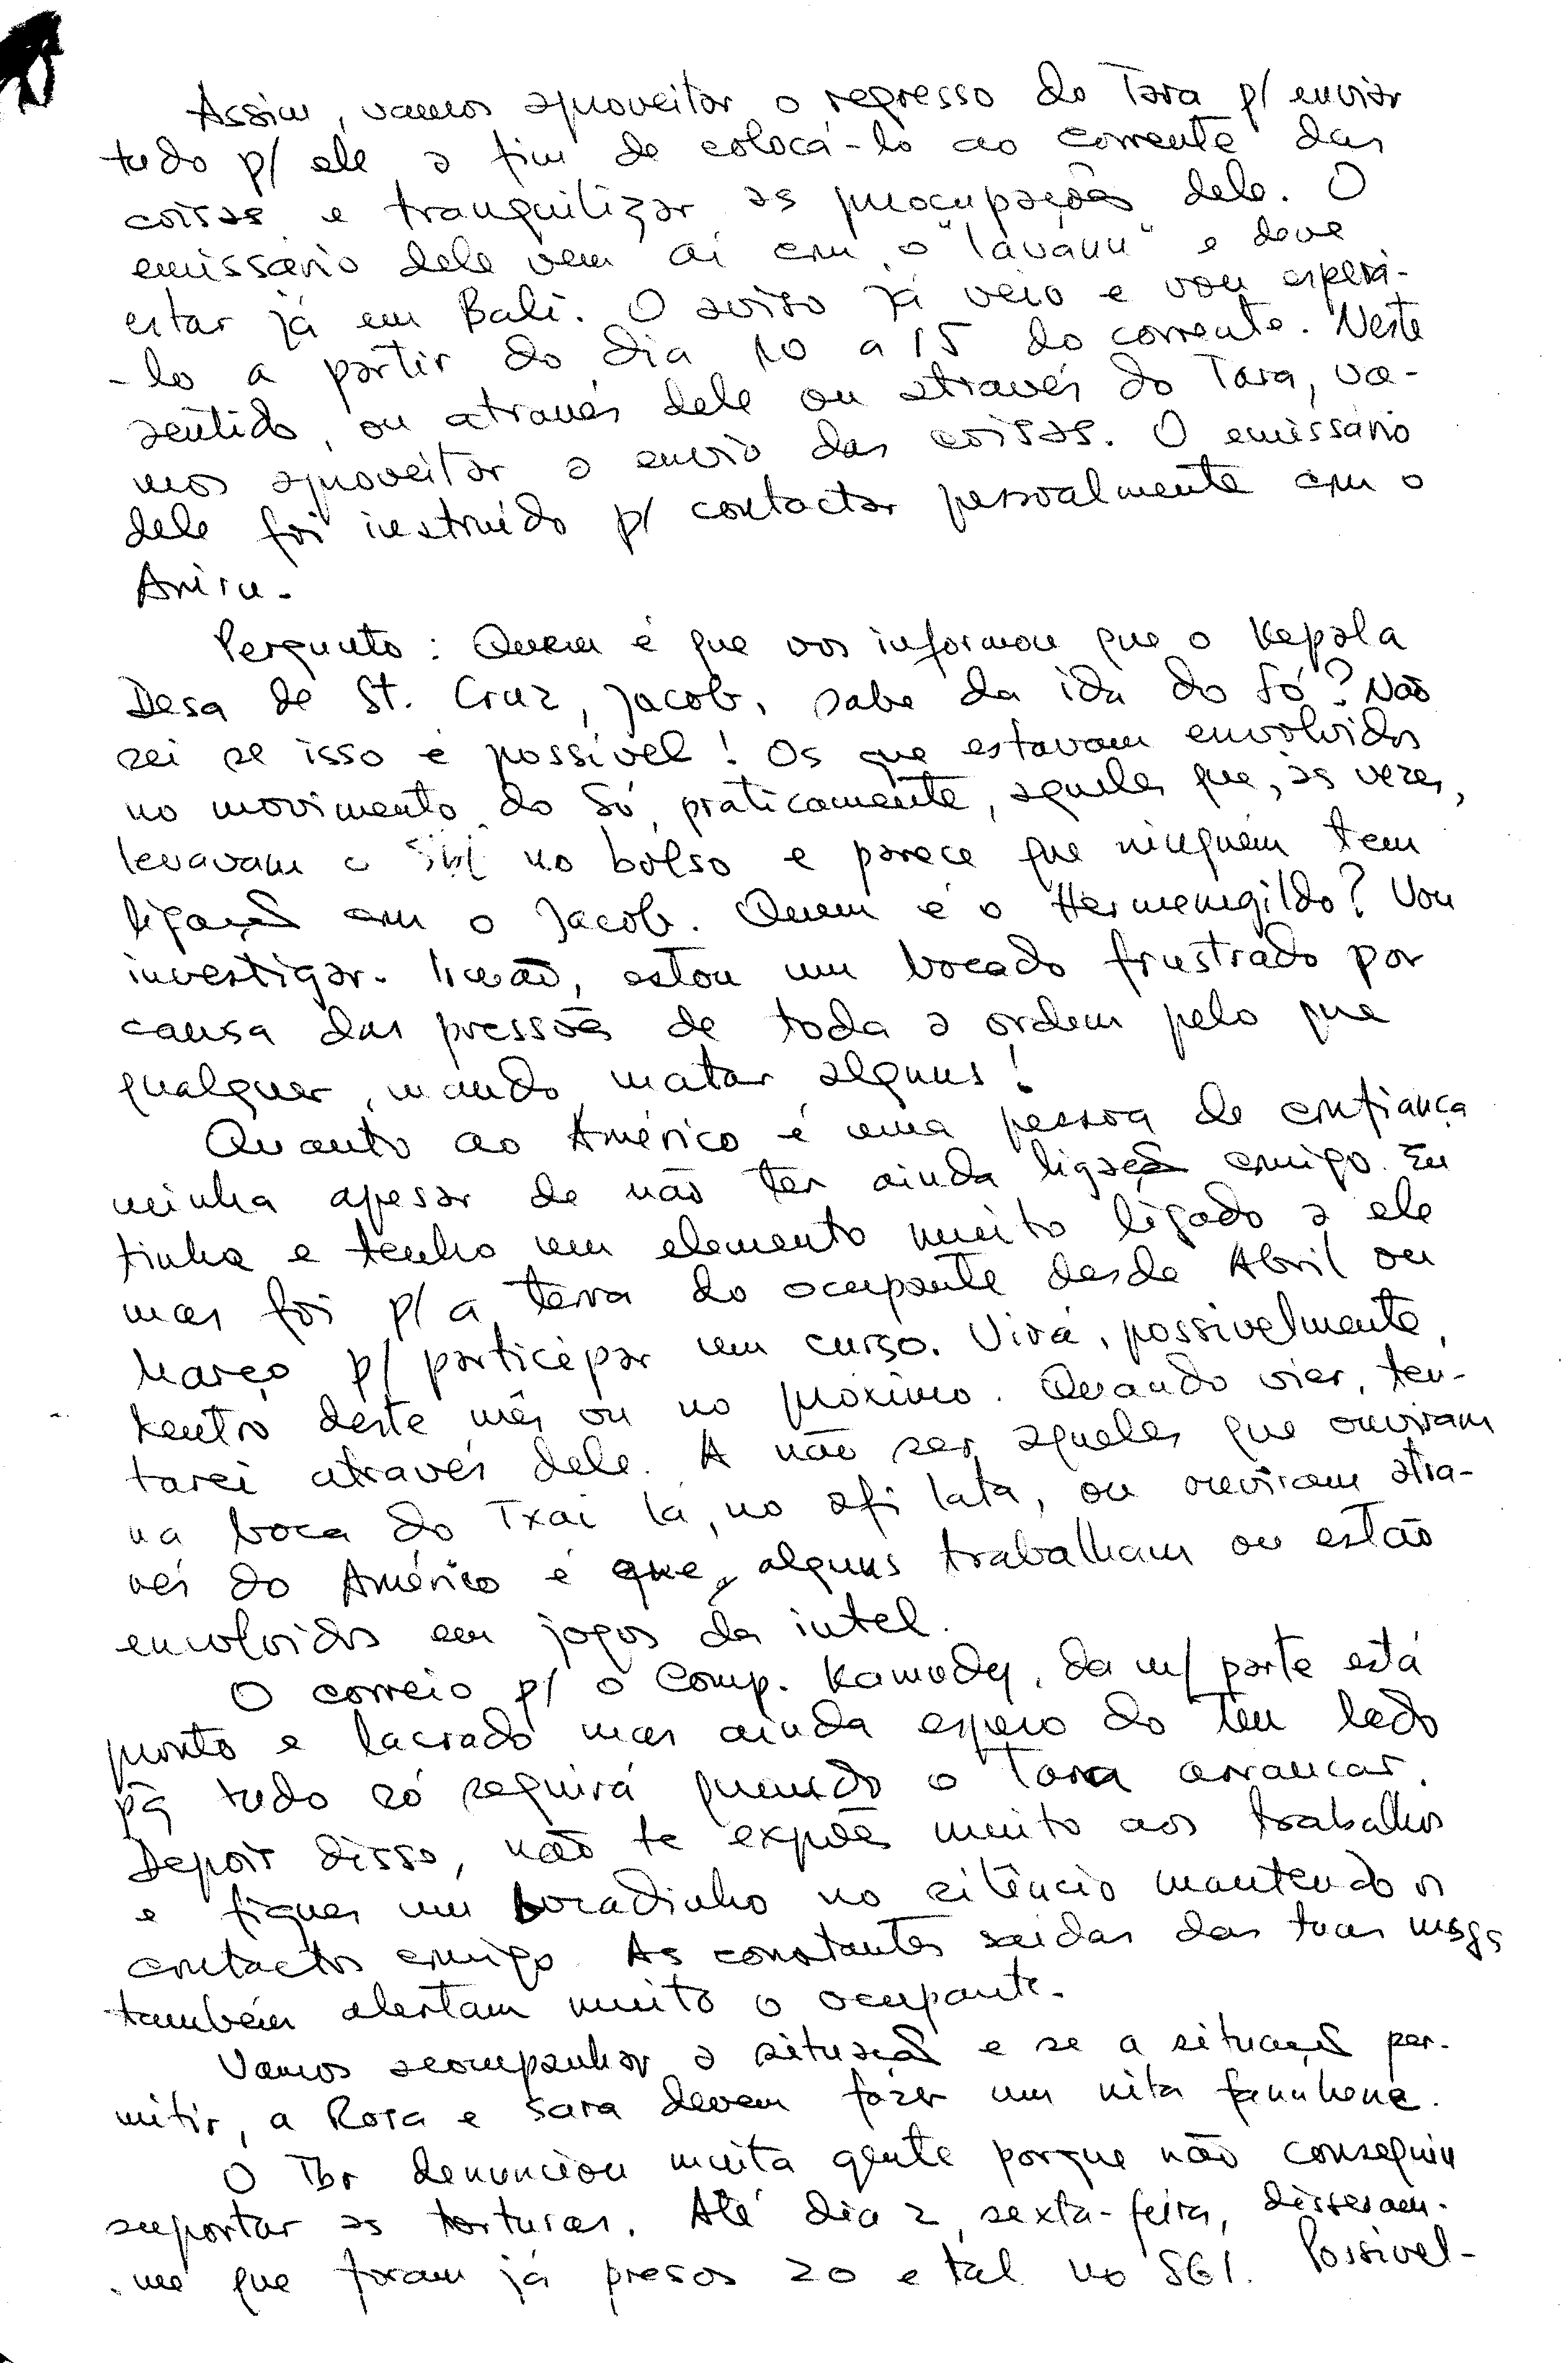 Assim, vamos aproveitar o regresso do Tara p/ enviar
tudo p/ ele a fim de colocá-lo ao corrente das
coisas e tranquilizar as preocupações dele. O
emissário dele vem aí com o "Lavanu" e deve
estar já em Bali. O aviso já veio e vou esperá-
-lo a partir do dia 10 a 15 do corrente. Neste
sentido, ou através dele ou através do Tara, va-
mos aproveitar o envio das coisas. O emissário
dele foi instruído p/ contactar pessoalmente com o
Aniru.
Pergunto: Quem é que vos informou que o Kepala
Desa de St. Cruz, Jacob, sabe da ida do Só? Não
sei se isso é possível! Os que estavam envolvidos
no movimento do Só, praticamente, aqueles que, às vezes,
levavam o no bolso e parece que ninguém tem
ligação com o Jacob. Quem é o Hermenegildo? Vou
investigar. Irmão, estou um bocado frustrado por
causa das pressões de toda a ordem pelo que
qualquer, mando matar alguns!
Quanto ao Américo é uma pessoa de confiança
minha apesar de não ter ainda ligação comigo. Eu
tinha e tenho um elemento muito ligado a ele
mas foi p/ a terra do ocupante desde Abril ou
Março p/ participar um curso. Virá, possivelmente,
dentro deste mês ou no próximo. Quando vier, ten-
tarei através dele. A não ser aqueles que ouviram
na boca do Txai lá, no afi lata, ou ouviram atra-
vés do Américo é que, alguns trabalham ou estão
envolvidos em jogos da intel.
O correio p/ o Comp. Kamudy, da m/ parte está
pronto e lacrado mas ainda espero do teu lado
pq tudo só seguirá quando o Tara arrancar.
Depois disso, não te expões muito aos trabalhos
e fiques um bocadinho no silêncio mantendo os
contactos comigo. As constantes saídas das tuas msgs
também alertam muito o ocupante.
Vamos acompanhar a situação e se a situação per-
mitir, a Rosa e Sara devem fazer um nita fannhene.
O Tbr denunciou muita gente porque não conseguiu
suportar as torturas. Até dia 2, sexta-feira, disseram-
-me que foram já presos 20 e tal no SGI. Possivel-